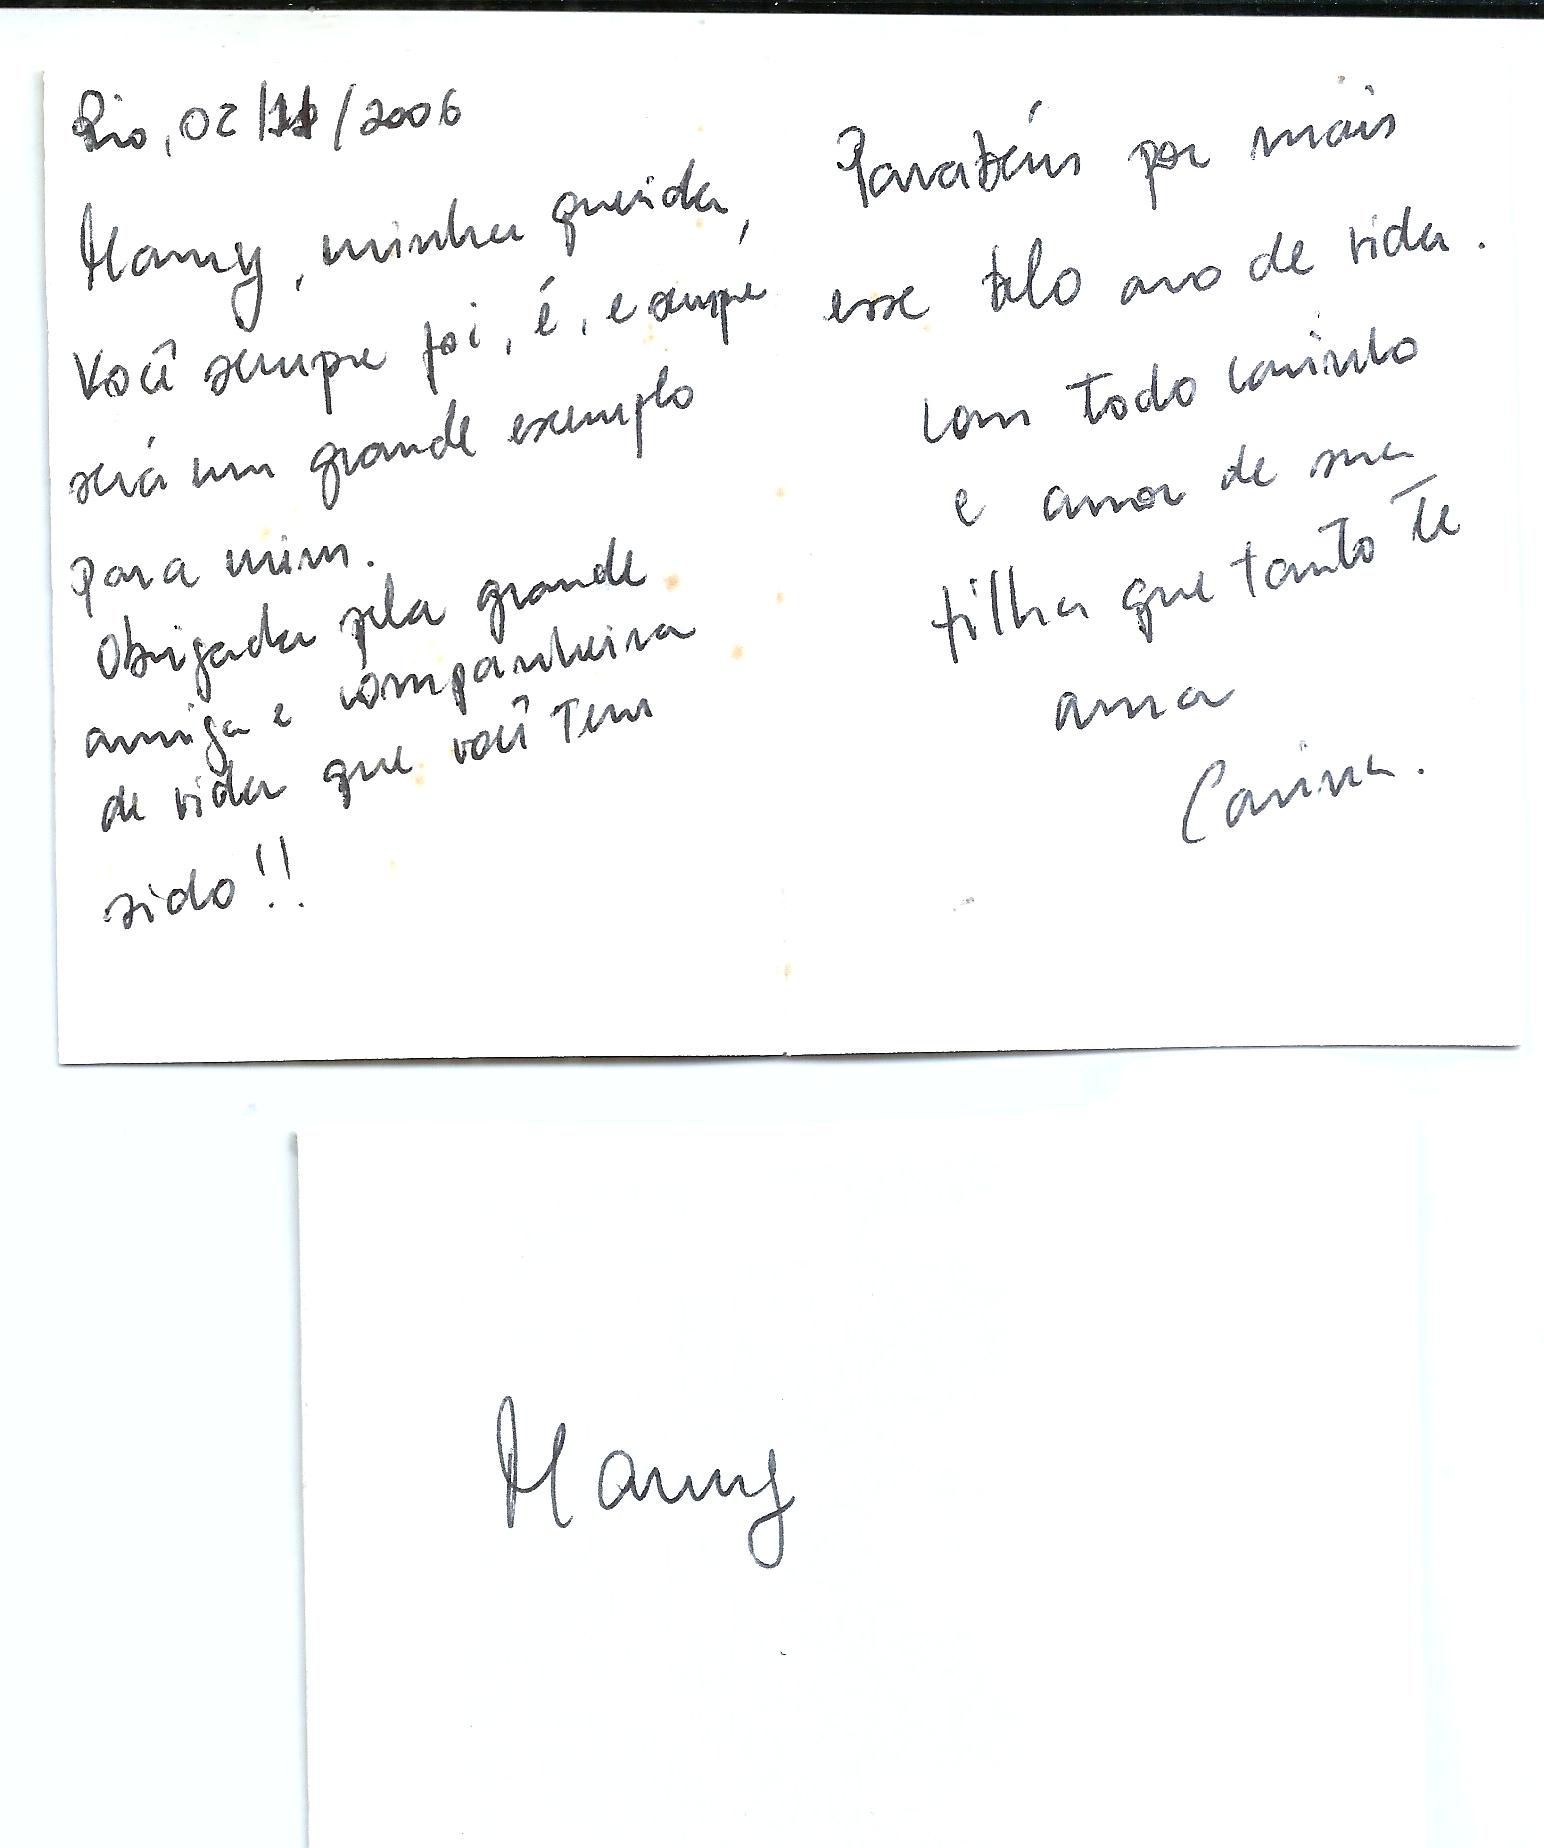 Rio, 02/11/2006
Mamy, minha querida,
Você sempre foi, é, e sempre
será um grande exemplo
para mim.
Obrigada pela grande
amiga e companheira
de vida que você tem
sido!!
Parabéns por mais
esse belo ano de vida.
com todo carinho
e amor de sua
filha que tanto te
ama
Carina.
Mamy